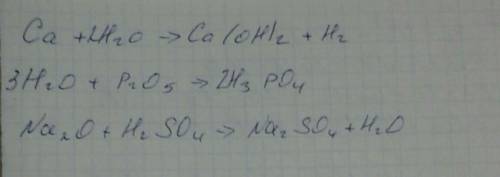 Ca + 2H2O → Ca(OH)2 + H2
3H2O + P2O5 → 2H3PO4
Na2O + H2SO4 → Na2SO4 + H2O